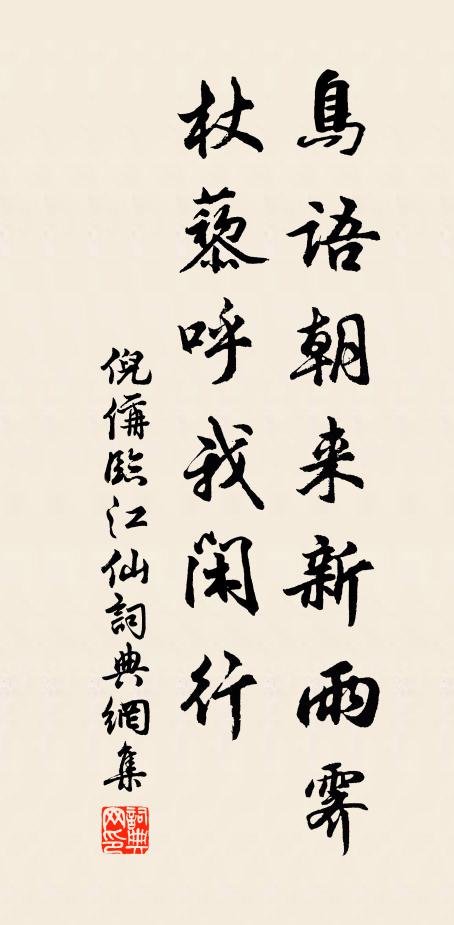 鳥語朝来新雨霽
杖藜呼我閑行
倪偁臨江仙詞典網集
詞典网印